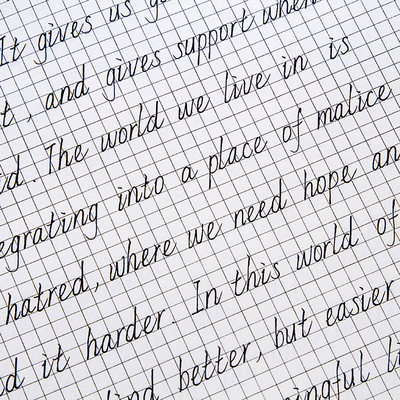 It gives us
t, and gives support when
id. The world we live in is
egrating into a place of malice
hatred, where we need hope an
d it harder. In this world of
ind better, but easier
ningful li